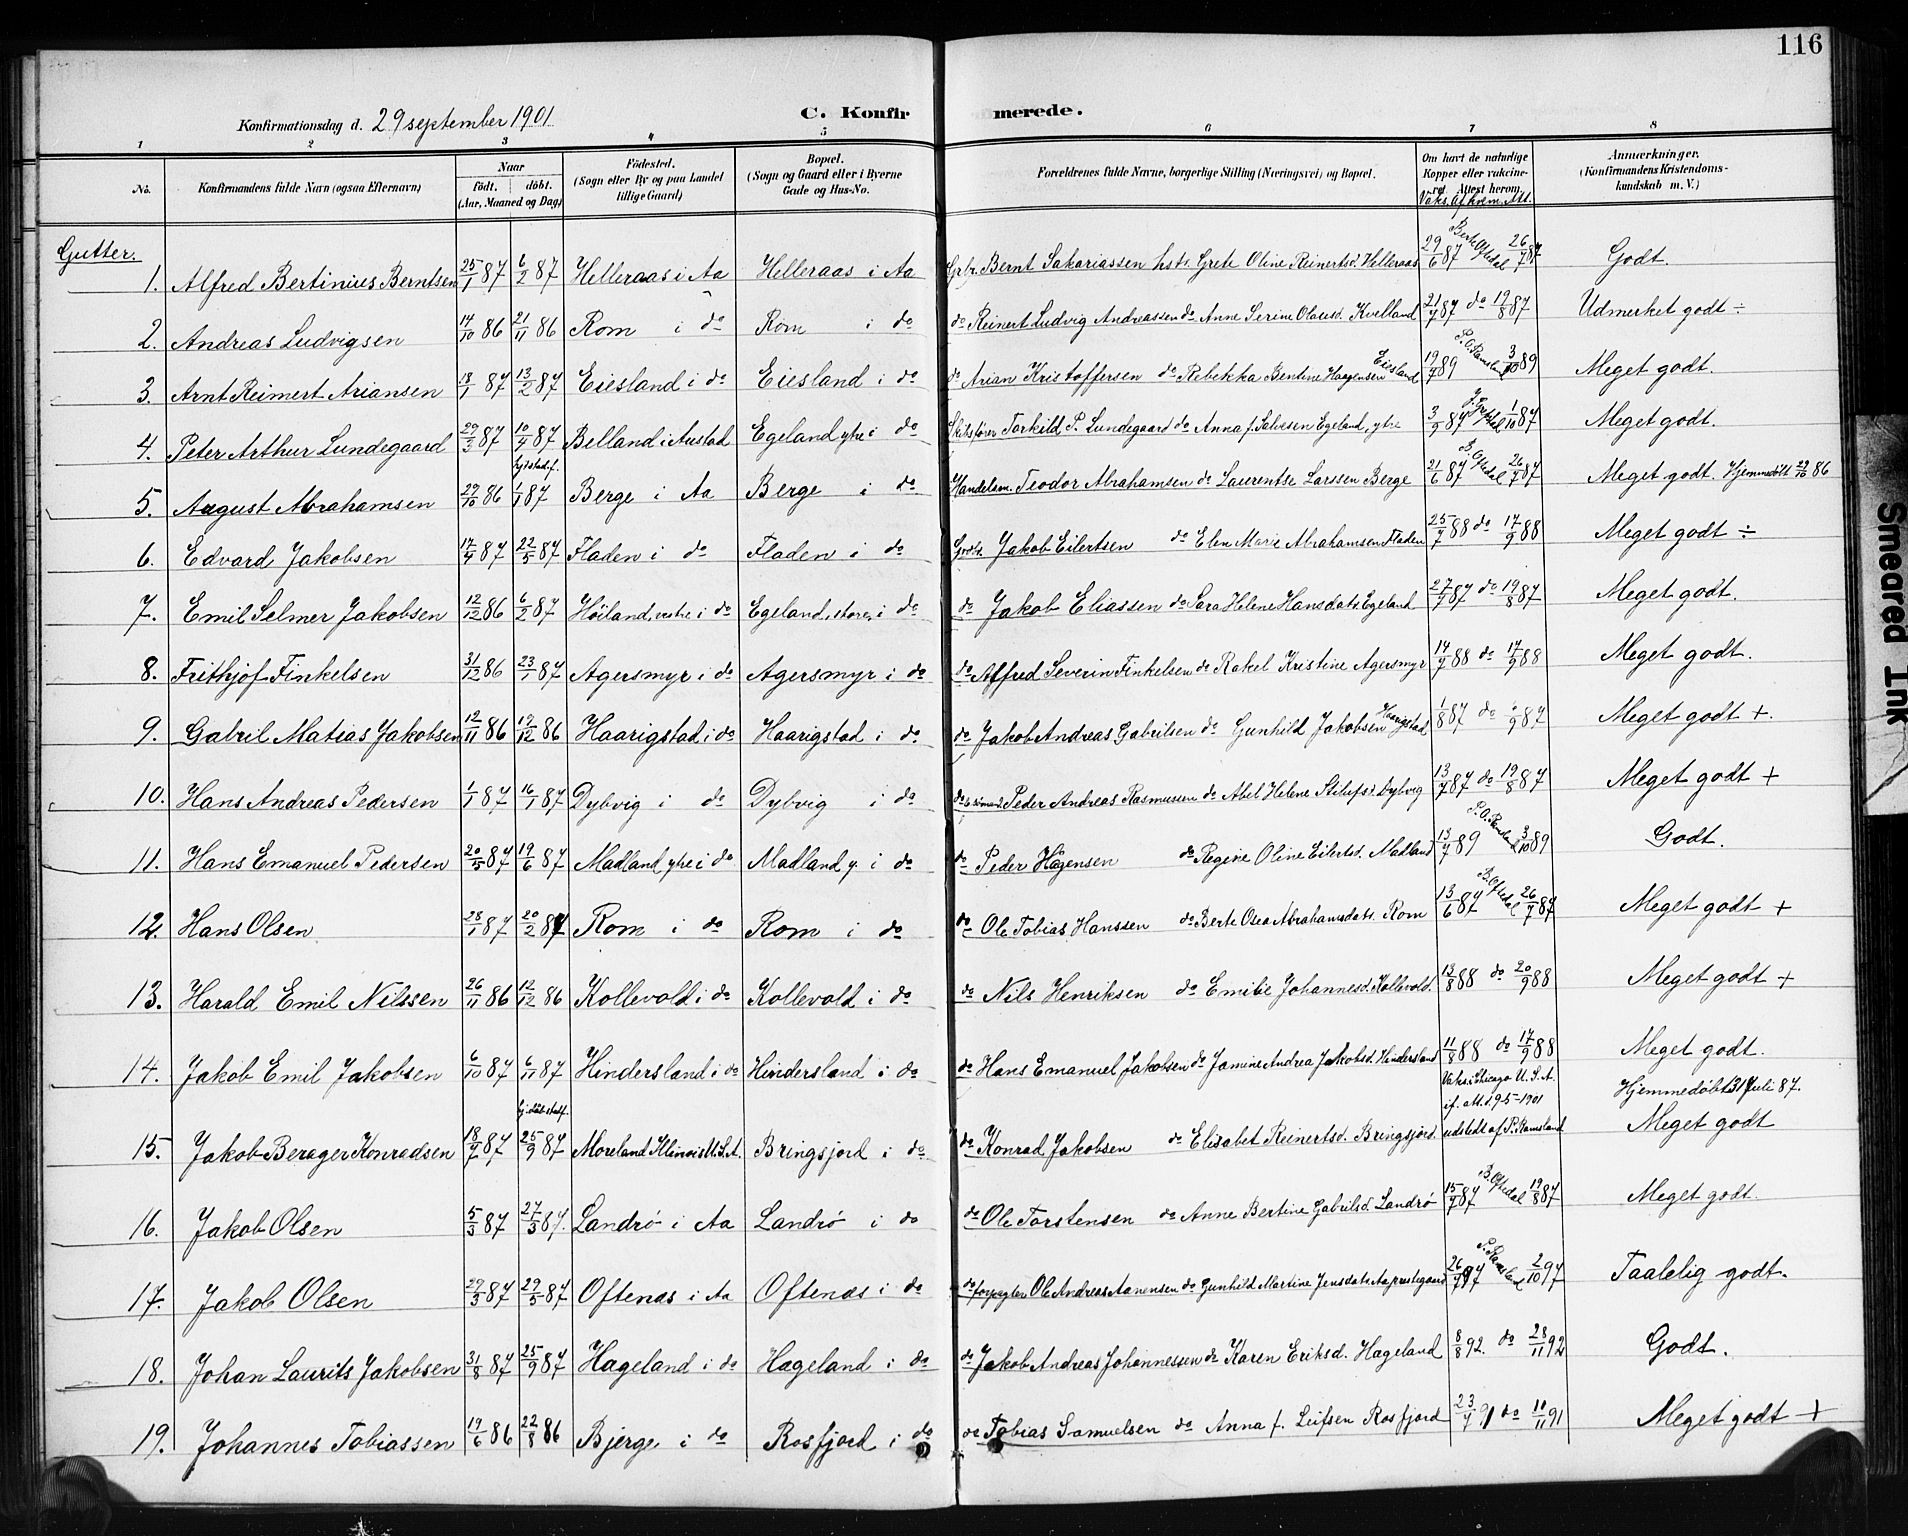 116
Konfirmationsdag d. 29 september 1901
C. Konfirmerede.
1 2 3 4 5 6 7 8
No. Konfirmandens fulde Navn (ogsaa Efternavn) Naar født. døbt. (Aar, Maaned og Dag) Fødested. (Sogn eller By og paa Landet tillige Gaard) Bopæl. (Sogn og Gaard eller i Byerne Gade og Hus-No. Forældrenes fulde Navne, borgerlige Stilling (Næringsvei) og Bopæl. Om havt de naturlige Kopper eller vaccineret. Attest herom. Vaks. Af hvem. Att. Anmærkninger. (Konfirmandens Kristendomskundskab m. V.)
Gutter.
1. Alfred Bertinius Berntsen 25/1 87 6/2 87 Helleraas i Aa Helleraas i Aa Grbr. Bernt Sakariassen hstr. Grete Oline Reinertsd. Helleraas 29/6 87 26/7 87 Godt.
2. Andreas Ludvigsen 14/10 86 21/11 86 Rom i do Rom i do do Reinert Ludvig Andreassen do Anne Serine Olausd. Kvelland 21/7 87 do 19/8 87 Udmerket godt ÷
3. Arnt Reimert Ariansen 18/1 87 13/2 87 Eiesland i do Eiesland i do do Arian Kristoffersen do Rebekka Bentine Haagensen Eiesland 19/7 89 P. O. Ramsland 3/10 89 Meget godt.
4. Peter Arthur Lundegaard 29/3 87 10/4 87 Belland i Austad Egeland ytre i do Skibsfører Torkild P. Lundegaard do Anna f. Salvesen Egeland, ytre 3/9 87 1/10 87 Meget godt.
5. August Abrahamsen 29/10 86 1/1 87 Berge i Aa Berge i do Handelsm. Teodor Abrahamsen do Laurentse Larssen Berge 21/6 87 B. Oftedal 26/7 87 Meget godt. Hjemmedøbt 29/10 86
6. Edvard Jakobsen 17/4 87 22/5 87 Fladen i do Fladen i do Grdbr. Jakob Eilertsen do Elen Marie Abrahamsen Fladen 25/7 88 do 17/9 88 Meget godt ÷
7. Emil Selmer Jakobsen 12/12 86 6/2 87 Høiland, vestre i do Egeland, store, i do do Jakob Eliassen do Sara Helene Hansdatr. Egeland 27/7 87 do 19/8 87 Meget godt.
8. Frithjof Finkelsen 31/12 86 23/1 87 Agersmyr i do Agersmyr i do do Alfred Severin Finkelsen do Rakel Kristine Agersmyr 14/7 88 do 17/9 88 Meget godt.
9. Gabril Matias Jakobsen 12/11 86 19/12 86 Haarigstad i do Haarigstad i do do Jakob Andreas Gabrilsen do Gunhild Jakobsen Haarigstad 1/8 87 do /9 87 Meget godt +.
10. Hans Andreas Pedersen 1/1 87 16/1 87 Dybvig i do Dybvig i do do & sømand Peder Andreas Rasmussen do Abel Helene Dybvig 13/7 87 do 19/8 87 Meget godt +
11. Hans Emanuel Pedersen 20/5 87 19/6 87 Madland ytre i do Madland y. i do do Peder Hågensen do Regine Oline Eilertsd. Madland 13/7 89 P. O. Ramsland 3/10 89 Godt.
12. Hans Olsen 28/1 87 20/2 87 Rom i do Rom i do do Ole Tobias Hanssen do Berte Olea Abrahamsdatr. Rom 13/6 87 B. Oftedal 26/7 87 Meget godt +
13. Harald Emil Nilssen 26/11 86 12/12 86 Kollevold i do Kollevold i do do Nils Henriksen do Emilie Johannesd. Kollevold. 13/8 88 do 20/9 88 Meget godt +
14. Jakob Emil Jakobsen 6/10 87 6/11 87 Hindersland i do Hindersland i do do Hans Emanuel Jakobsen do Jamine Andrea Jakobsd. Hindersland 11/8 88 do 17/9 88 Meget godt.
15. Jakob Berager Konradsen 18/7 87 25/9 87 Moreland Illinois U.S.A. Bringsjord i do do Konrad Jakobsen do Elisabet Reinertsd. Bringsjord. Vaks. i Chicago U. S. A. if. att. d. 9-5-1901 udstedt af P. Ramsland Hjemmedøbt 31 Juli 87. Meget godt
16. Jakob Olsen 5/3 87 27/3 87. Landrö i Aa Landrö i do do Ole Torstensen do Anne Bertine Gabrilsd. Landrö 15/7 87 B. Oftedal 19/8 87 Meget godt.
17. Jakob Olsen 29/3 87 29/5 87 Oftenes i Aa Oftenes i do do forpagter Ole Andreas Aanensen do Gunhild Martine Jensdatr. Aa prestegaard 26/7 97 P. Ramsland 2/10 97 Taalelig godt.
18. Johan Laurits Jakobsen 31/8 87 25/9 87 Hageland i do Hageland i do do Jakob Andreas Johannessen do Karen Eriksd. Hageland 8/8 92. do 28/11 92 Godt.
19. Johannes Tobiassen 19/6 86 22/8 86 Bjerge i do Rosfjord i do do Tobias Samuelsen do Anna f. Leifsen Rosfjord 23/7 91 do 10/11 91 Meget godt +
Smeared Ink